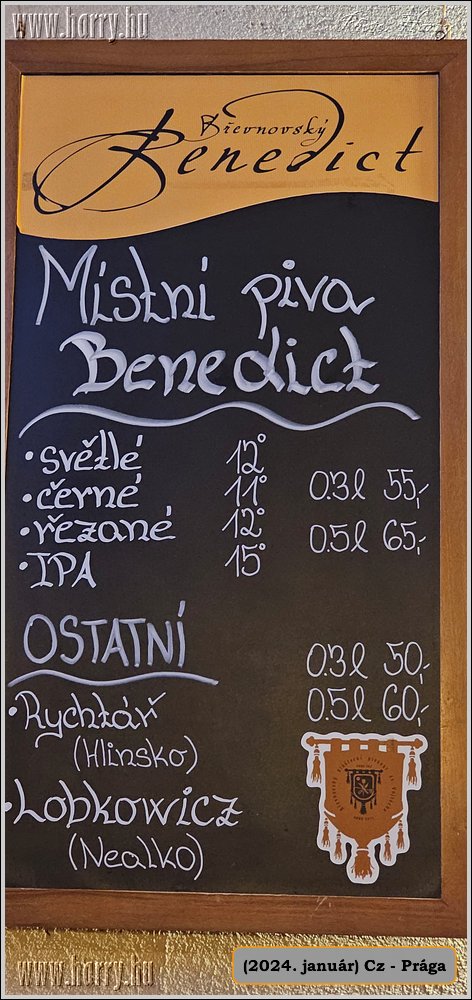 www.harry.hu
Břevnovský
Benedict
Místní piva
Benedict
• světlé 12°
• černé 11° 0.3l 55,-
• řezané 12° 0.5l 65,-
• IPA 15°
OSTATNÍ
0.3l 50,-
• Rychtář 0.5l 60,-
(Hlinsko)
• Lobkowicz
(Nealko)
www.harry.hu
(2024. január) Cz - Prága